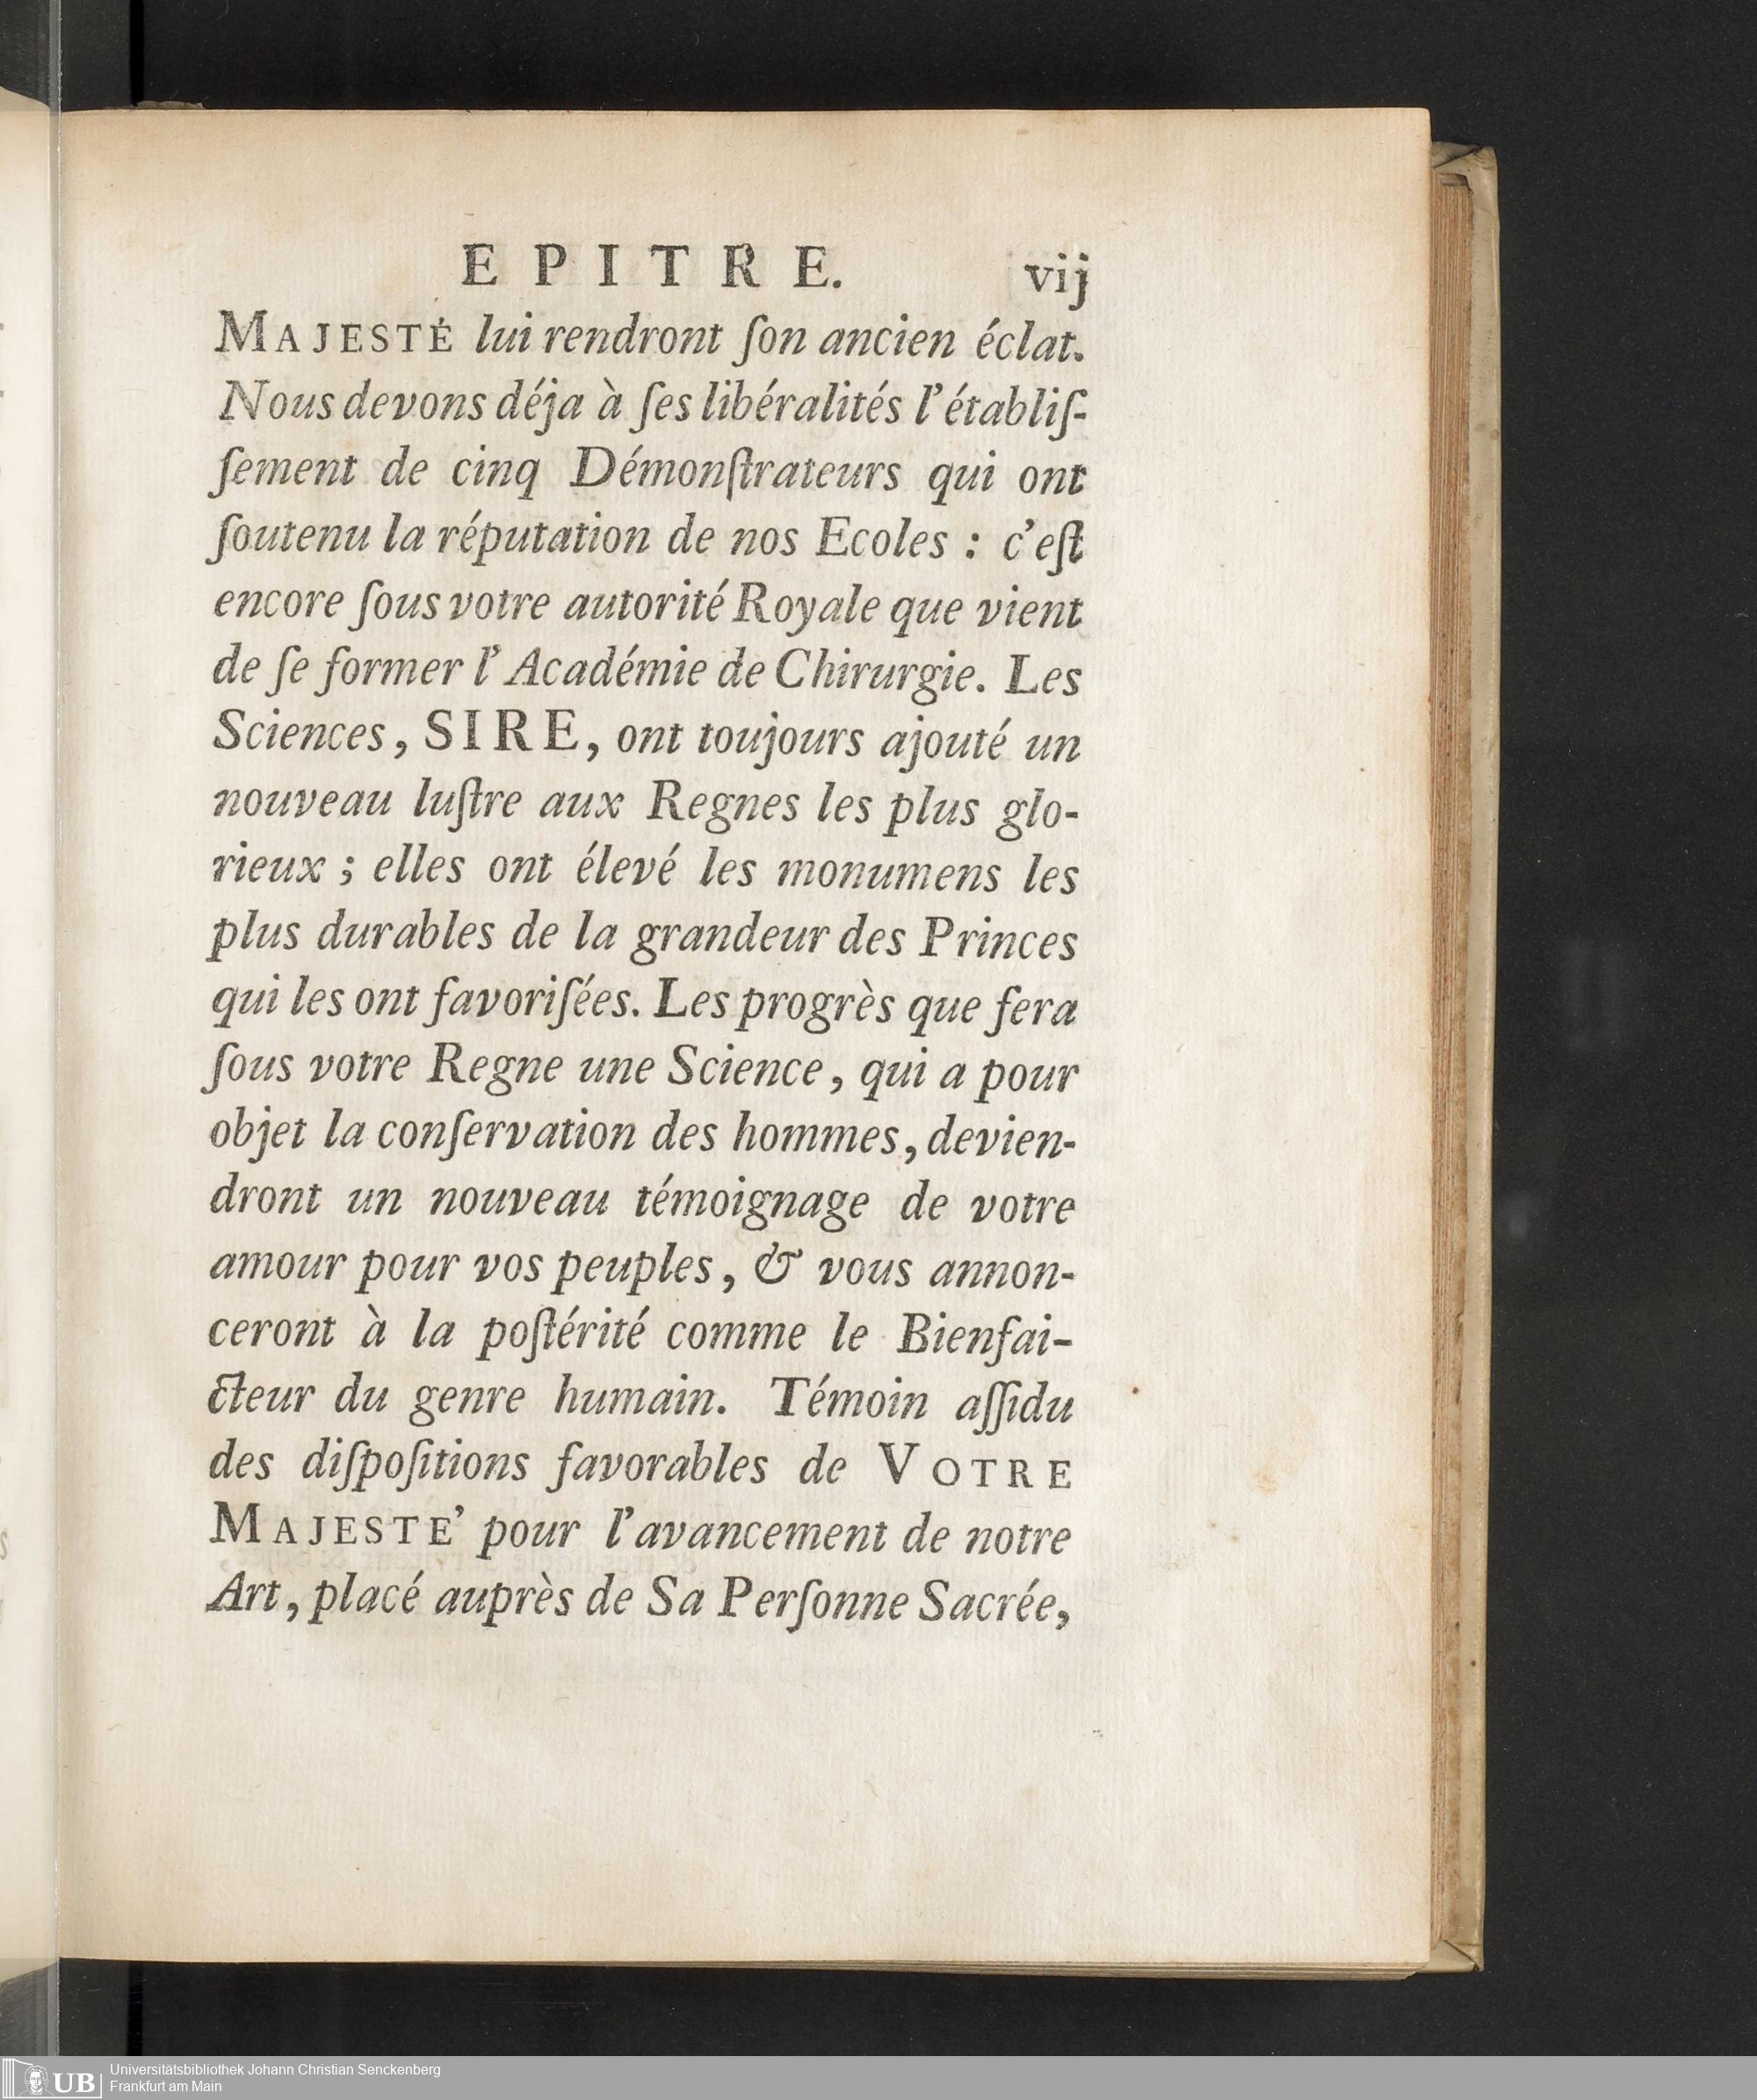 EPITRE. vij
MAJESTÉ lui rendront ſon ancien éclat.
Nous devons déja à ſes libéralités l'établiſ-
ſement de cinq Démonſtrateurs qui ont
ſoutenu la réputation de nos Ecoles : c'eſt
encore ſous votre autorité Royale que vient
de ſe former l'Académie de Chirurgie. Les
Sciences, SIRE, ont toujours ajouté un
nouveau luſtre aux Regnes les plus glo-
rieux ; elles ont élevé les monumens les
plus durables de la grandeur des Princes
qui les ont favoriſées. Les progrès que fera
ſous votre Regne une Science, qui a pour
objet la conſervation des hommes, devien-
dront un nouveau témoignage de votre
amour pour vos peuples, & vous annon-
ceront à la poſtérité comme le Bienfai-
cteur du genre humain. Témoin aſſidu
des diſpoſitions favorables de VOTRE
MAJESTE' pour l'avancement de notre
Art, placé auprès de Sa Perſonne Sacrée,
UB Universitätsbibliothek Johann Christian Senckenberg
Frankfurt am Main